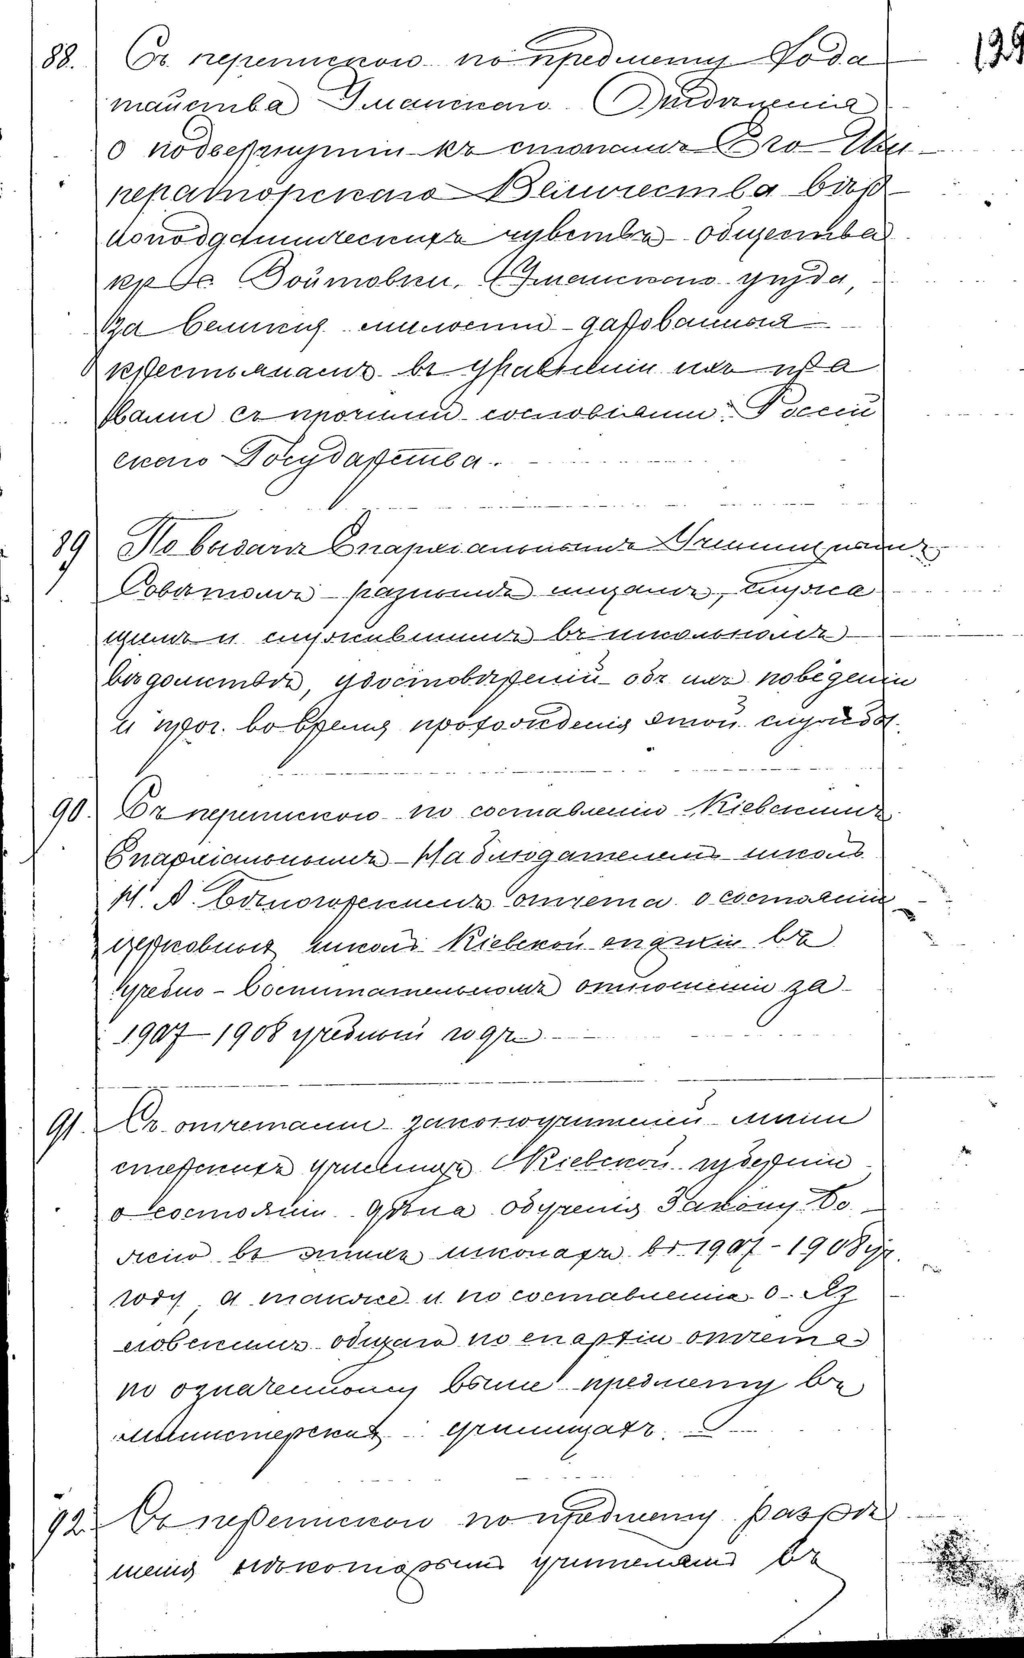 129
88. Съ перепискою по предмету Хода
тайства Уманскаго Отдѣленія
о подверженіи къ стопамъ Его Им
ператорскаго Величества вѣр
ноподданническихъ чувствъ общества
кр. с. Войтовки, Уманскаго уѣзда,
за великія милости дарованныя
крестьянамъ въ уравненіи ихъ пра
вами съ прочими сословіями Россій
скаго Государства.
89 По выдачѣ Епархіальнымъ Училищнымъ
Совѣтомъ разнымъ лицамъ, служа
щимъ и служившимъ въ школьномъ
вѣдомствѣ, удостовѣреній объ ихъ поведеніи
и проч. во время прохожденія этой службы.
90. Съ перепискою по составленію Кіевскимъ
Епархіальнымъ Наблюдателемъ школъ
И. А. Бѣлогорскимъ отчета о состояніи
церковныхъ школъ Кіевской епархіи въ
учебно-воспитательномъ отношеніи за
1907–1908 учебный годъ.
91. Съ отчетами законоучителей мини
стерскихъ училищъ Кіевской губерніи
о состояніи дѣла обученія Закону Бо
жію въ этихъ школахъ въ 1907–1908 уч.
году, а также и по составленію о. Яз
ловскимъ общаго по епархіи отчета
по означенному выше предмету въ
министерскихъ училищахъ.
92. Съ перепискою по предмету разрѣ
шенія нѣкоторымъ учителямъ въ